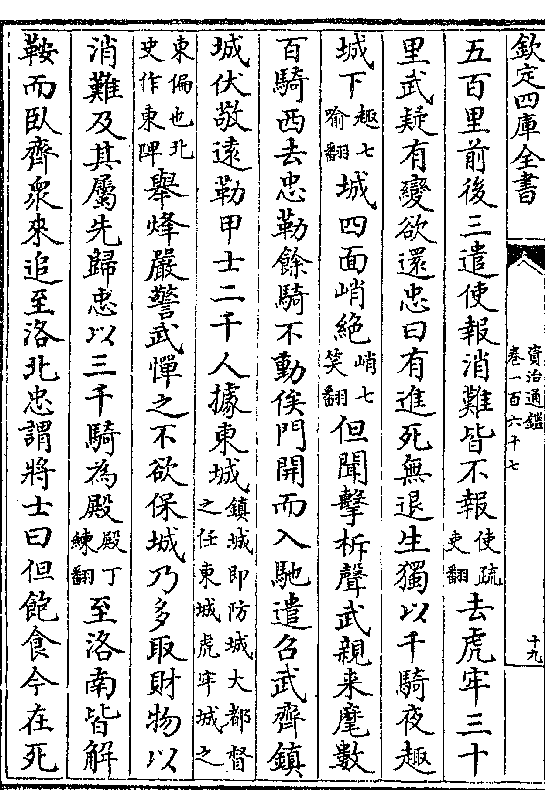 欽定四庫全書
資治通鑑
卷一百六十七
十九
五百里前後三遣使報消難皆不報使疏吏翻去虎牢三十
里武疑有變欲還忠曰有進死無退生獨以千騎夜趣
城下趣七喻翻城四面峭絶峭七笑翻但聞擊柝聲武親来麾數
百騎西去忠勒餘騎不動俟門開而入馳遣召武齊鎮
城伏敬遠勒甲士二千人據東城鎮城即防城大都督之任東城虎牢城之
東偏也北史作東陴舉烽嚴警武憚之不欲保城乃多取財物以
消難及其屬先歸忠以三千騎為殿殿丁練翻至洛南皆解
鞍而臥齊衆來追至洛北忠謂將士曰但飽食今在死